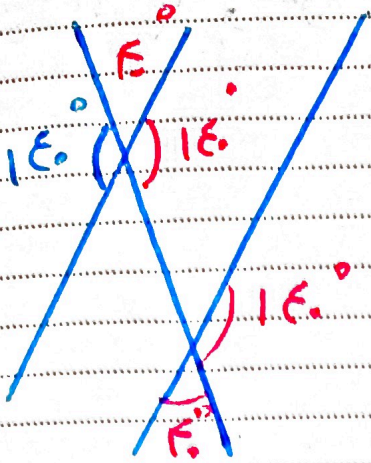 ٤°
١٤٠° ١٤٠°
١٤٠°
٤٠°